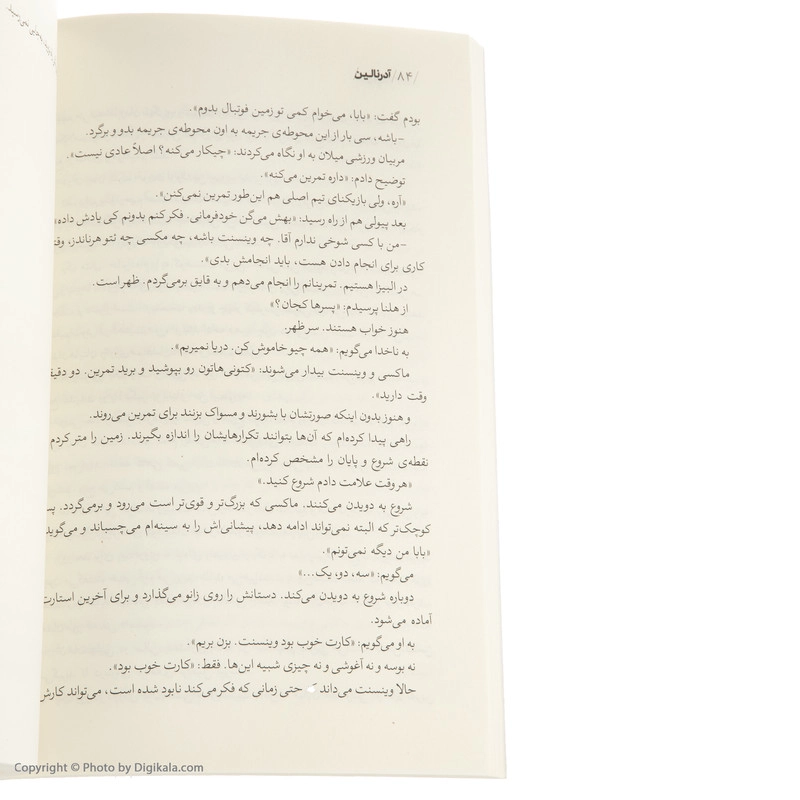 /۸۴/ آدرنالین
بودم گفت: «بابا، می‌خوام کمی تو زمین فوتبال بدوم».
-باشه، سی بار از این محوطه‌ی جریمه به اون محوطه‌ی جریمه بدو و برگرد.
مربیان ورزشی میلان به او نگاه می‌کردند: «چیکار می‌کنه؟ اصلاً عادی نیست».
توضیح دادم: «داره تمرین می‌کنه».
«آره، ولی بازیکنای تیم اصلی هم این‌طور تمرین نمی‌کنن».
بعد پیولی هم از راه رسید: «بهش می‌گن خودفرمانی. فکر کنم بدونم کی یادش داده»
-من با کسی شوخی ندارم آقا. چه وینسنت باشه، چه مکسی چه تئو هرناندز، وقتی
کاری برای انجام دادن هست، باید انجامش بدی».
در البیزا هستیم. تمرینانم را انجام می‌دهم و به قایق برمی‌گردم. ظهر است.
از هلنا پرسیدم: «پسرها کجان؟»
هنوز خواب هستند. سر ظهر.
به ناخدا می‌گویم: «همه چیو خاموش کن. دریا نمیریم».
ماکسی و وینسنت بیدار می‌شوند: «کتونی‌هاتون رو بپوشید و برید تمرین. دو دقیقه
وقت دارید».
و هنوز بدون اینکه صورتشان با بشورند و مسواک بزنند برای تمرین می‌روند.
راهی پیدا کرده‌ام که آن‌ها بتوانند تکرارهایشان را اندازه بگیرند. زمین را متر کردم
نقطه‌ی شروع و پایان را مشخص کرده‌ام.
«هر وقت علامت دادم شروع کنید.»
شروع به دویدن می‌کنند. ماکسی که بزرگ‌تر و قوی‌تر است می‌رود و برمی‌گردد.
کوچک‌تر که البته نمی‌تواند ادامه دهد، پیشانی‌اش را به سینه‌ام می‌چسباند و می‌گوید
«بابا من دیگه نمی‌تونم».
می‌گویم: «سه، دو، یک...»
دوباره شروع به دویدن می‌کند. دستانش را روی زانو می‌گذارد و برای آخرین استارت
آماده می‌شود.
به او می‌گویم: «کارت خوب بود وینسنت. بزن بریم».
نه بوسه و نه آغوشی و نه چیزی شبیه این‌ها. فقط: «کارت خوب بود».
حالا وینسنت می‌داند حتی زمانی که فکر می‌کند نابود شده است، می‌تواند کارش
Copyright © Photo by Digikala.com